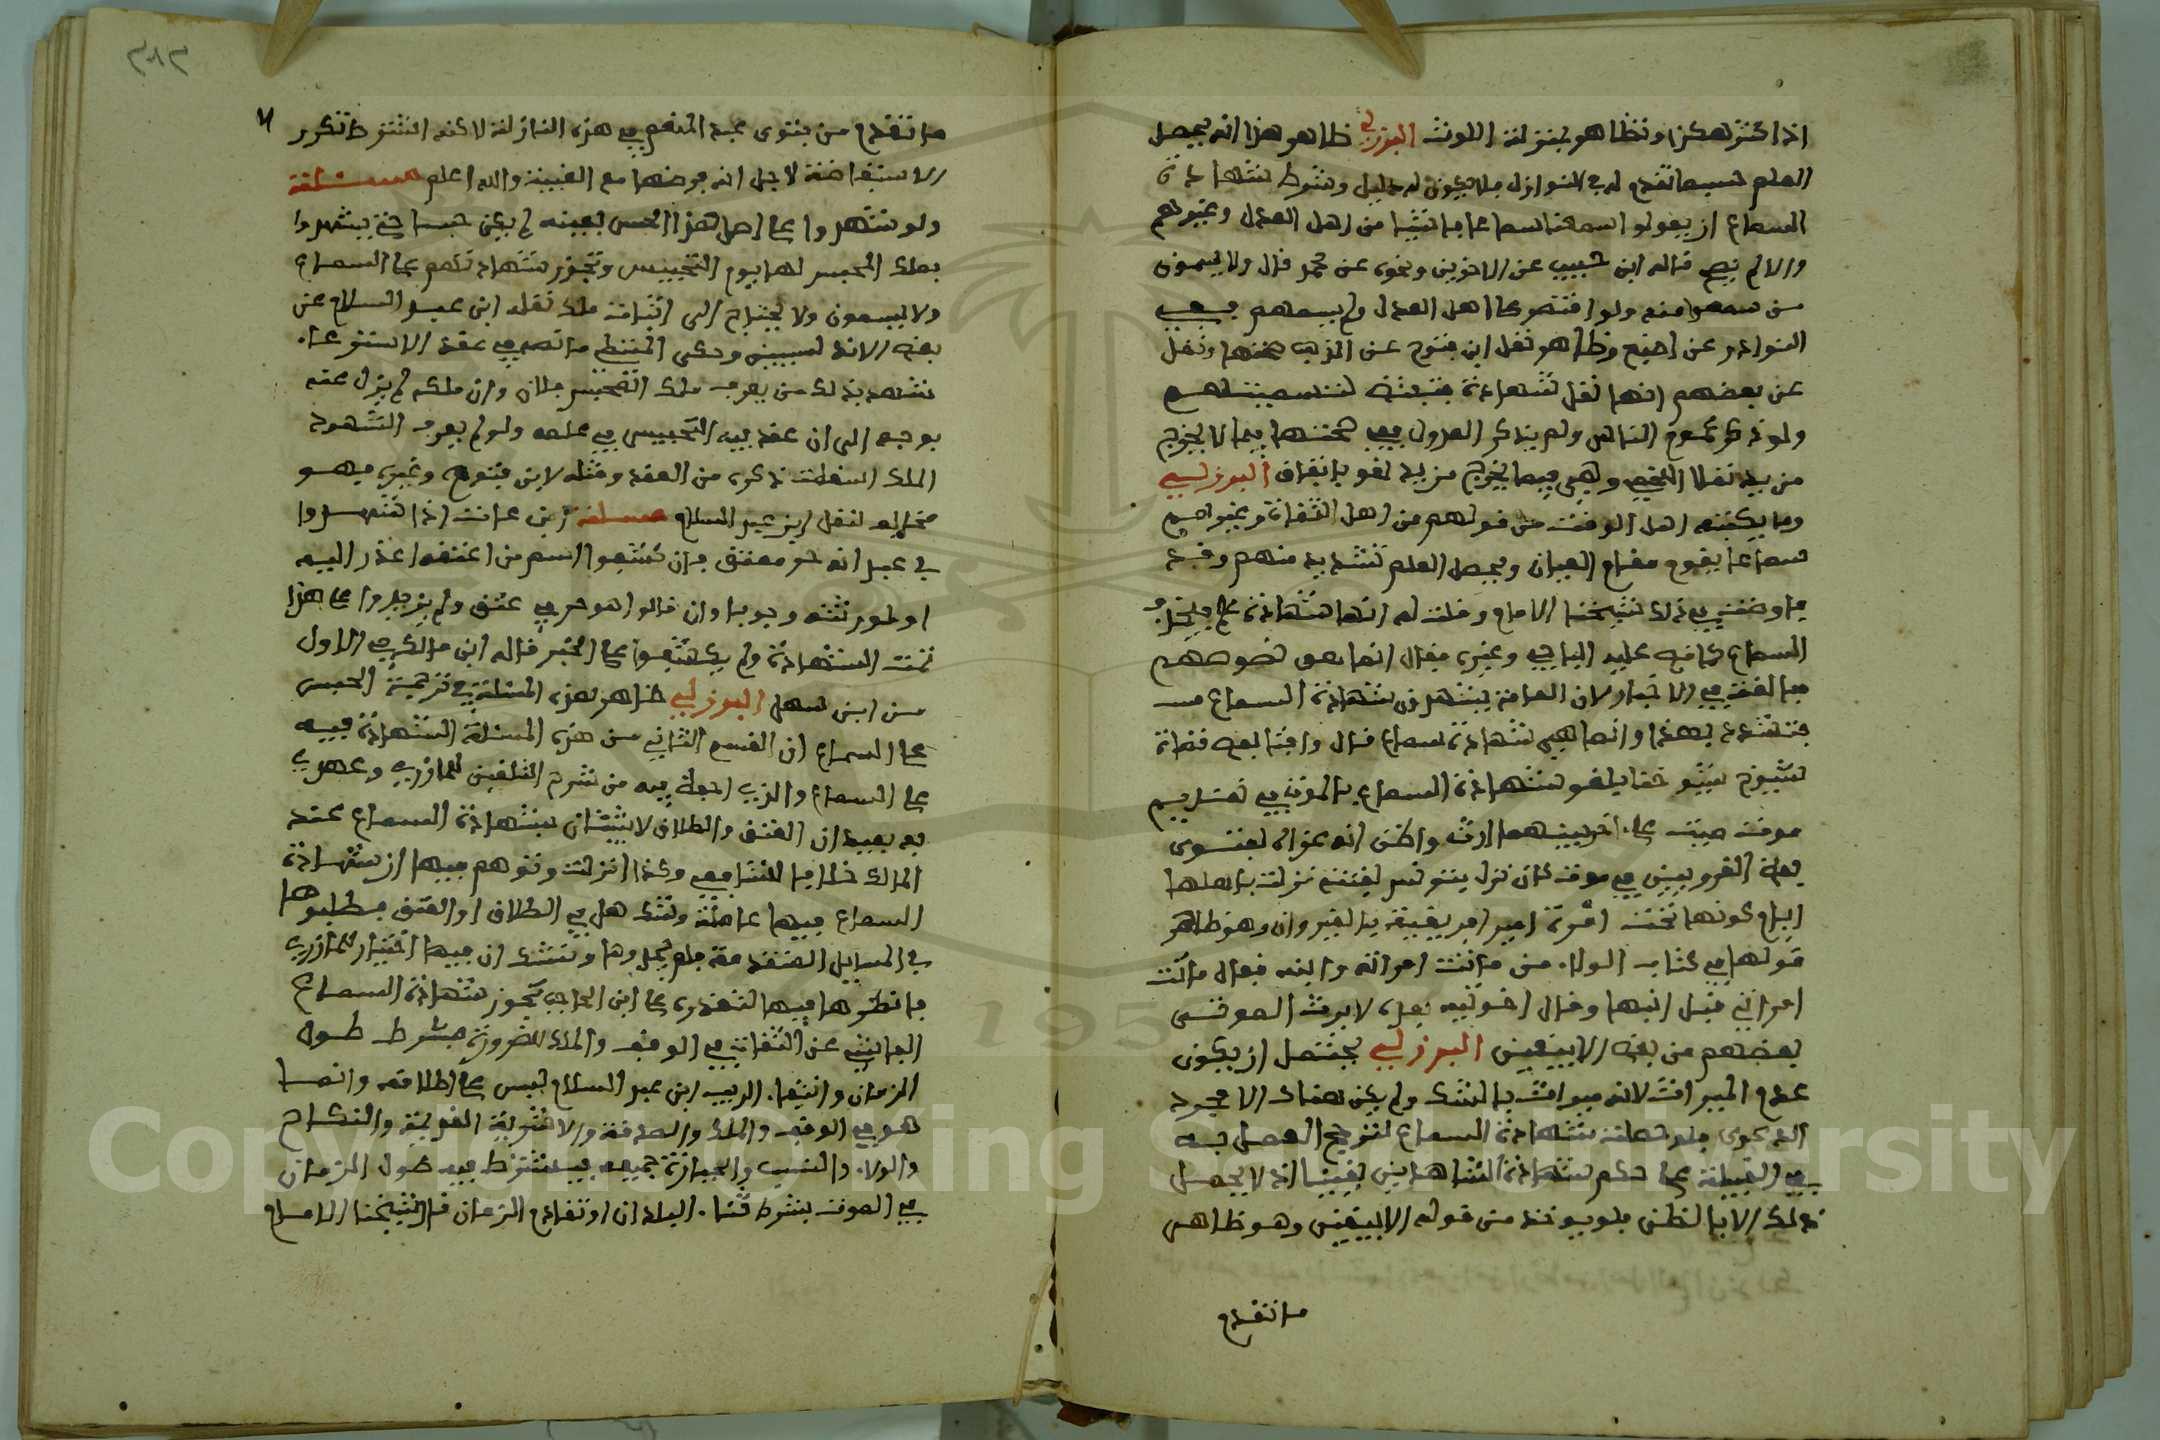 اذا كثر هكذا وتظاهر بمنزلة اللوث البرزلي ظاهر هذا انه يحصل
العلم حسبما تقدم له في النوازل فلا يكون له دليل وشرط شهادة
السماع ان يقولوا سمعنا سماعا فاشيا من اهل العدل وغيرهم
والا لم تصح قاله ابن حبيب عن الاخوين ونحوه عن محمد قال ولا يسمون
من سمعوا منه ولو اقتصر على اهل العدل ولم يسمهم ففي
النوادر عن اصبغ وظاهر نقل ابن فتوح عن المذهب صحتها ونقل
عن بعضهم انها نقل شهادة فتبطل لتسميتهم
ولو ذكر عموم الناس ولم يذكر العدول ففي صحتها فيما لا يخرج
من يد نقلا اللخمي وهي فيما يخرج من يد لغو باتفاق البرزلي
وما يكتبه اهل الوقت من قولهم من اهل الثقات وغيرهم
سماعا يقوم مقام العيان ويحصل العلم تشديد منهم وقد
فاوضت في ذلك شيخنا الامام وقلت له انها شهادة علم
السماع كما نبه عليه الباجي وغيره فقال انما هو نصوصهم
مبالغة في الاخبار لان العامة يشهدون شهادة السماع
فتشدد بهذا وانما هي شهادة سماع قال وافتا بعض قضاة
شيوخ شيوخنا بلغو شهادة السماع بالموت في تقديم
موت ميت على اخر بينهما ارث واظن انه عزاه لفتوى
بعض القرويين في موت كان نزل بتونس لفتنة نزلت باهلها
ايام كونها تحت امرة امير افريقية بالقيروان وهو ظاهر
قولها في كتاب الولاء من ماتت امراته وابنه فقال ماتت
امراتي قبل ابنها وقال اخوتها بعده لا يرث الموتى
بعضهم من بعض الا بيقين البرزلي يحتمل ان يكون
عدم الميراث لانه ميراث بالشك ولم يكن هناك الا مجرد
الدعوى فلو حصلت شهادة السماع لترجح العمل به
في القبيلة على حكم شهادة الشاهدين يقينا اذ لا يحصل
ذلك الا بالظن فلو يوخذ من قوله الا بيقين وهو ظاهر
ما تقدم
٣٨٢
ما تقدم من فتوى عبد المنعم في هذه النازلة لاكنه اشترط تكرر
الاستفاضة لاجل انه فرضها مع الغيبة والله اعلم مسئلة
ولو شهدوا على اصل هذا الحبس بعينه لم يكن حبسا حتى يشهدوا
بملك المحبس لها يوم التحبيس وتجوز شهادتهم على السماع
ولا يسمون ولا يحتاج الى اثبات ملك نقله ابن عبد السلام عن
بعض الاندلسيين وحكى المتيطي ما نصه في عقد الاسترعاء
شهد بذلك من يعرف ملك المحبس فلان وان ملكه لم يزل عنه
بوجه الى ان عقد فيه التحبيس في علمه ولو لم يعرف الشهود
الملك اسقطت ذكره من العقد ومثله لابن فتوح وغيره فهو
مخالف لنقل ابن عبد السلام مسئلة ابن عات اذا شهدوا
في عبد انه حر معتق فان كشفوا اسم من اعتقه اعذر اليه
او لورثته وجوبا وان قالوا هو حر في عتق ولم يزيدوا على هذا
تمت الشهادة ولم يكشفوا على الخبر قاله ابن مالك في الاول
من ابن سهل البرزلي ظاهر هذه المسئلة في ترجمة الحبس
على السماع ان القسم الثاني من هذه المسئلة الشهادة فيه
على السماع والذي احفظ فيه من شرح التلقين للمازري وعهدي
به بعيد ان العتق والطلاق لا يثبتان بشهادة السماع عند
المالك خلافا للشافعي وكذا انزلت ونوهم فيها ان شهادة
السماع فيها عاملة وشك هل في الطلاق او العتق فطلبوها
في المسايل المتقدمة فلم يجدوها وتشك ان فيها اختيار المازري
فانظرها فيها لتعذره على ابن الحاجب تجوز شهادة السماع
الفاشي عن الثقات في الوقف والملك للضرورة بشرط طول
الزمان وانتفاء الريب ابن عبد السلام ليس على اطلاقه وانما
هو في الوقف والملك والصدقة والاشرية القديمة والنكاح
والولاء والنسب والحيازة جميعه يشترط فيه طول الزمان
في الموت بشرط تناء البلدان او تقادم الزمان قال شيخنا الامام
Copyright © King Saud University
195